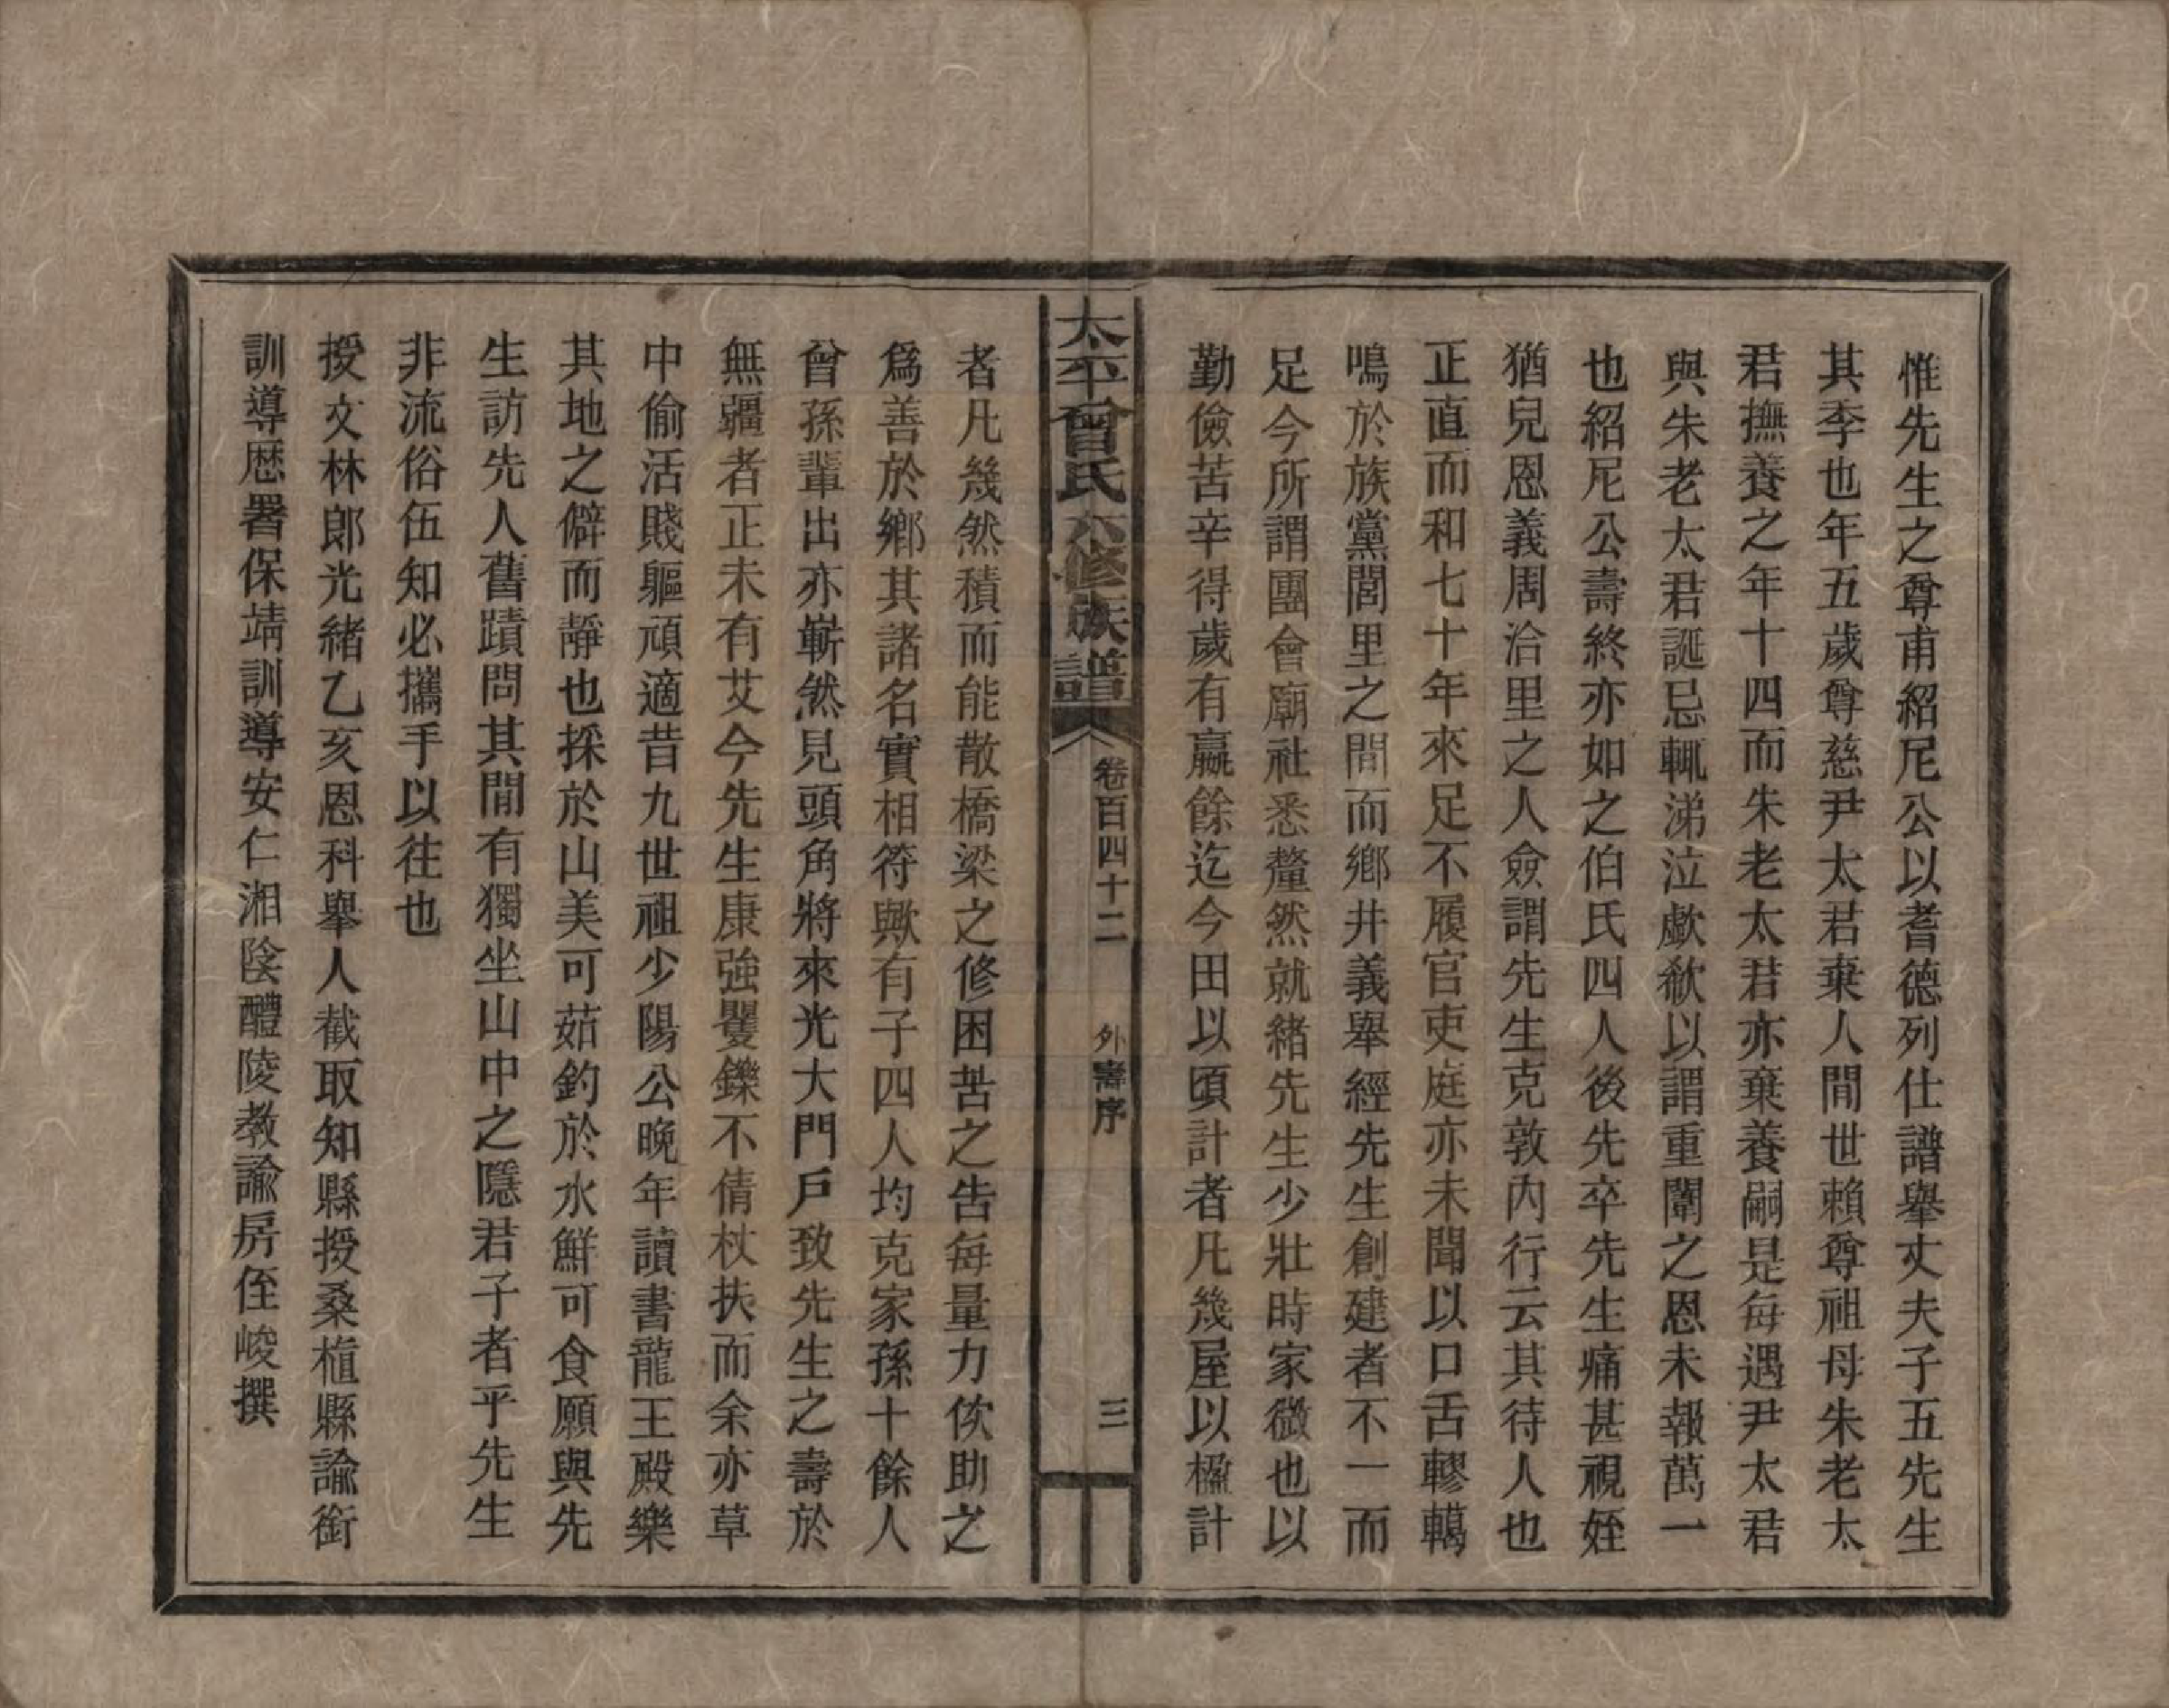 惟先生之尊甫紹尼公以耆德列仕譜舉丈夫子五先生
其季也年五歲尊慈尹太君棄人間世賴尊祖母朱老太
君撫養之年十四而朱老太君亦棄養嗣是每遇尹太君
與朱老太君誕忌輒涕泣歔欷以謂重闈之恩未報萬一
也紹尼公壽終亦如之伯氏四人後先卒先生痛甚視姪
猶兒恩義周洽里之人僉謂先生克敦內行云其待人也
正直而和七十年來足不履官吏庭亦未聞以口舌轇轕
鳴於族黨閭里之間而鄉井義舉經先生創建者不一而
足今所謂團會廟社悉釐然就緒先生少壯時家微也以
勤儉苦辛得歲有贏餘迄今田以頃計者凡幾屋以楹計
太平曾氏六修族譜 卷百四十二 外壽序 三
者凡幾然積而能散橋梁之修困苦之告每量力佽助之
爲善於鄉其諸名實相符歟有子四人均克家孫十餘人
曾孫輩出亦嶄然見頭角將來光大門戶致先生之壽於
無疆者正未有艾今先生康強矍鑠不倩杖扶而余亦草
中偷活賤軀頑適昔九世祖少陽公晚年讀書龍王殿樂
其地之僻而靜也採於山美可茹釣於水鮮可食願與先
生訪先人舊蹟問其間有獨坐山中之隱君子者乎先生
非流俗伍知必攜手以往也
授文林郎光緒乙亥恩科舉人截取知縣授桑植縣諭銜
訓導歷署保靖訓導安仁湘陰醴陵教諭房侄峻撰